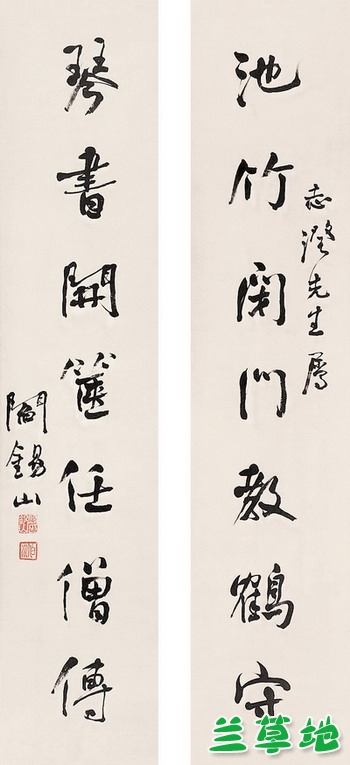 池竹闭門教鶴守
志澄先生屬
琴書開箧任僧傳
閻錫山
兰草地